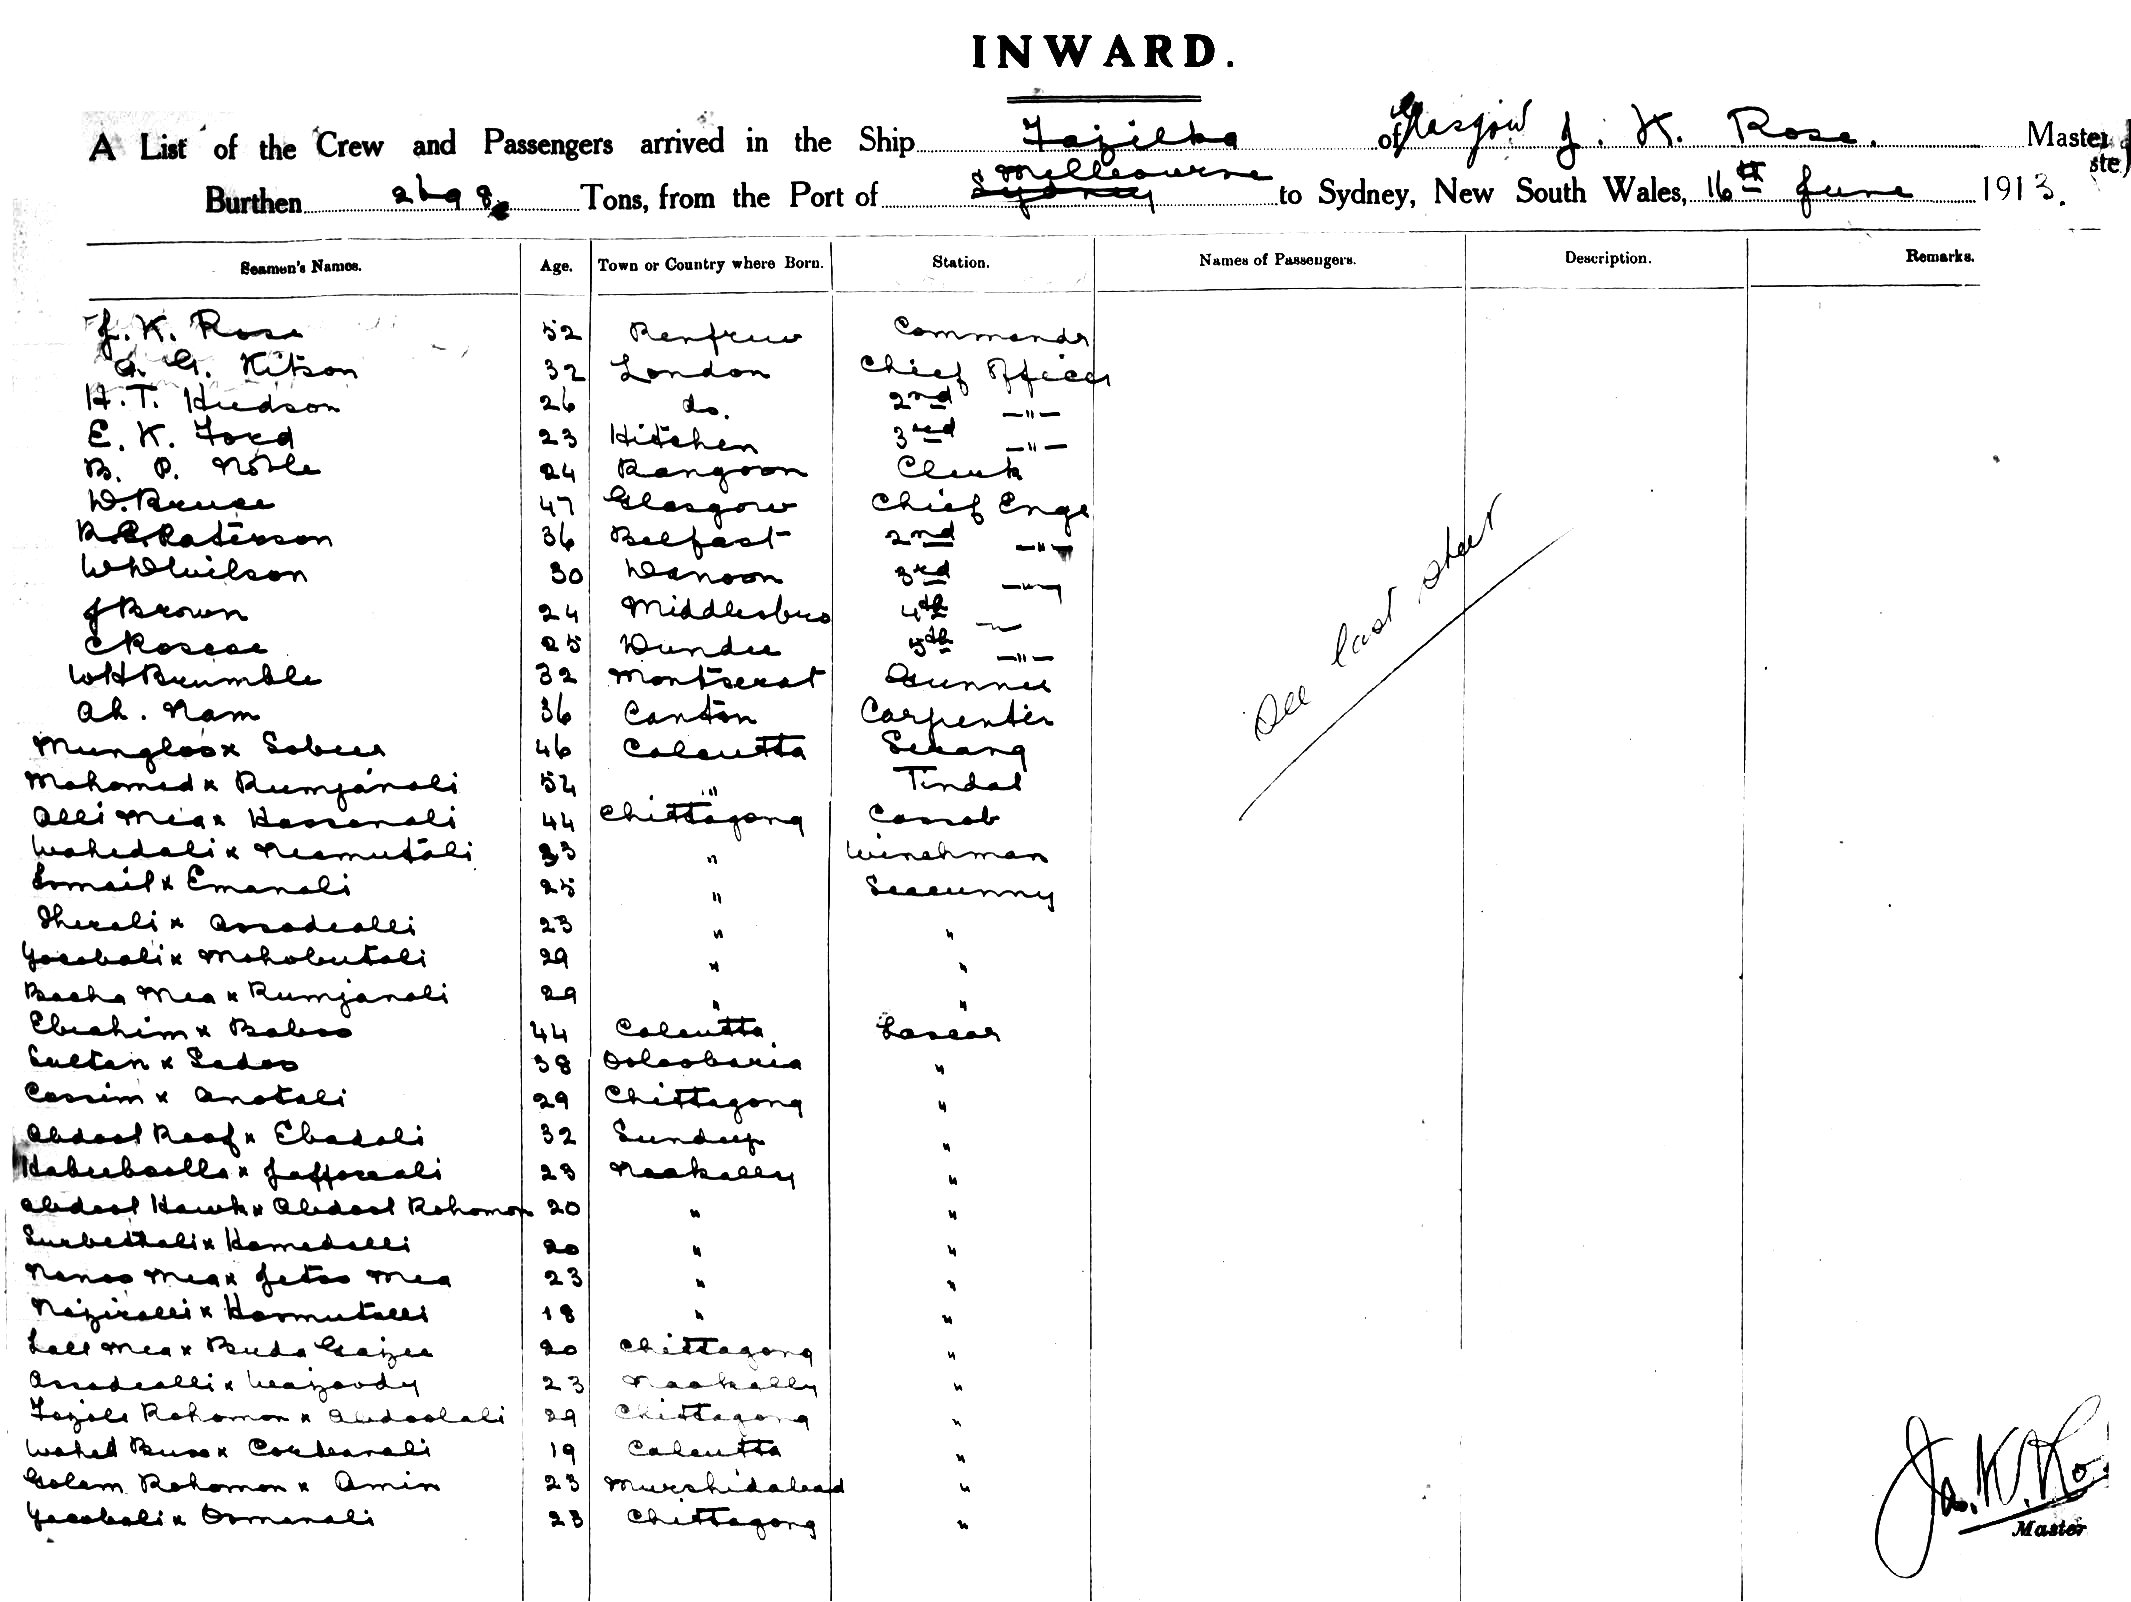 INWARD.
A List of the Crew and Passengers arrived in the Ship Fazilka of Glasgow J. K. Rose. Master
Burthen Tons, from the Port of Sydney Melbourne to Sydney, New South Wales, 16th June 1913.
Seamen's Names. Age. Town or Country where Born. Station. Names of Passengers. Description. Remarks.
J. K. Rose 52 Renfrew Commander
A. G. Kitson 32 London Chief Officer
H. T. Hudson 26 do. 2nd —"—
E. K. Ford 23 Hitchen 3rd —"—
B. P. Noble 24 Rangoon Clerk
D. Bruce 47 Glasgow Chief Engr
R. C. Paterson 36 Belfast 2nd —"—
W D Wilson 30 Dunoon 3rd —"—
J Brown 24 Middlesbro 4th —"—
C Roscoe 25 Dundee 5th —"—
W H Brumble 32 Montserat Gunner
Ah. Nam 36 Canton Carpenter
Mungloo x Sobeer 46 Calcutta Serang
Mahomed x Rumjanali 54 " Tindal
Alli Mea x Hassanali 44 Chittagong Cassab
Wahedali x Neamutali 33 " Winchman
Ismail x Emanali 25 " Seacunny
Sherali x Assadealli 23 " "
Yacobali x Mohobutali 29 " "
Bacha Mea x Rumjanali 29 " "
Ebrahim x Baboo 44 Calcutta Lascar
Sultan x Sadoo 38 Ooloobaria "
Cassim x Anatali 29 Chittagong "
Abdool Roof x Ebadali 32 Sundeep "
Habeeboolla x Jafforali 23 Noakally "
Abdool Hawk x Abdool Rohomon 20 " "
Surbettali x Hamedalli 20 " "
Nanoo Mea x Jetoo Mea 23 " "
Naziralli x Hasmutalli 18 " "
Lall Mea x Buda Gaizee 20 Chittagong "
Assadealli x 23 Noakally "
Fazole Rohomon x Abdoolali 29 Chittagong "
Wahed Buxx x 19 Calcutta "
Golam Rohomon x Amin 23 Murshidabad "
Yacobali x Osmanali 23 Chittagong "
See last sheet
Jas. K. Ro
Master